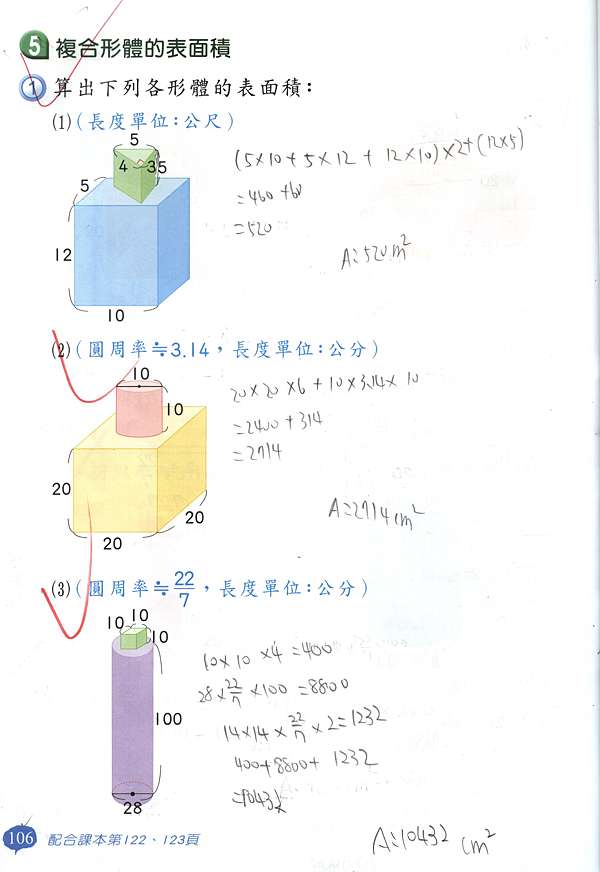 5 複合形體的表面積
1 算出下列各形體的表面積：
(1)(長度單位：公尺)
5
4 3 5
5
12
10
(5×10+5×12+12×10)×2+(12×5)
=460+60
=520
A:520m²
(2)(圓周率≒3.14，長度單位：公分)
10
10
20
20
20
20×20×6+10×3.14×10
=2400+314
=2714
A:2714cm²
(3)(圓周率≒22/7，長度單位：公分)
10
10
10
100
28
10×10×4=400
28×22/7×100=8800
14×14×22/7×2=1232
400+8800+1232
=10432
A:10432cm²
106 配合課本第122、123頁